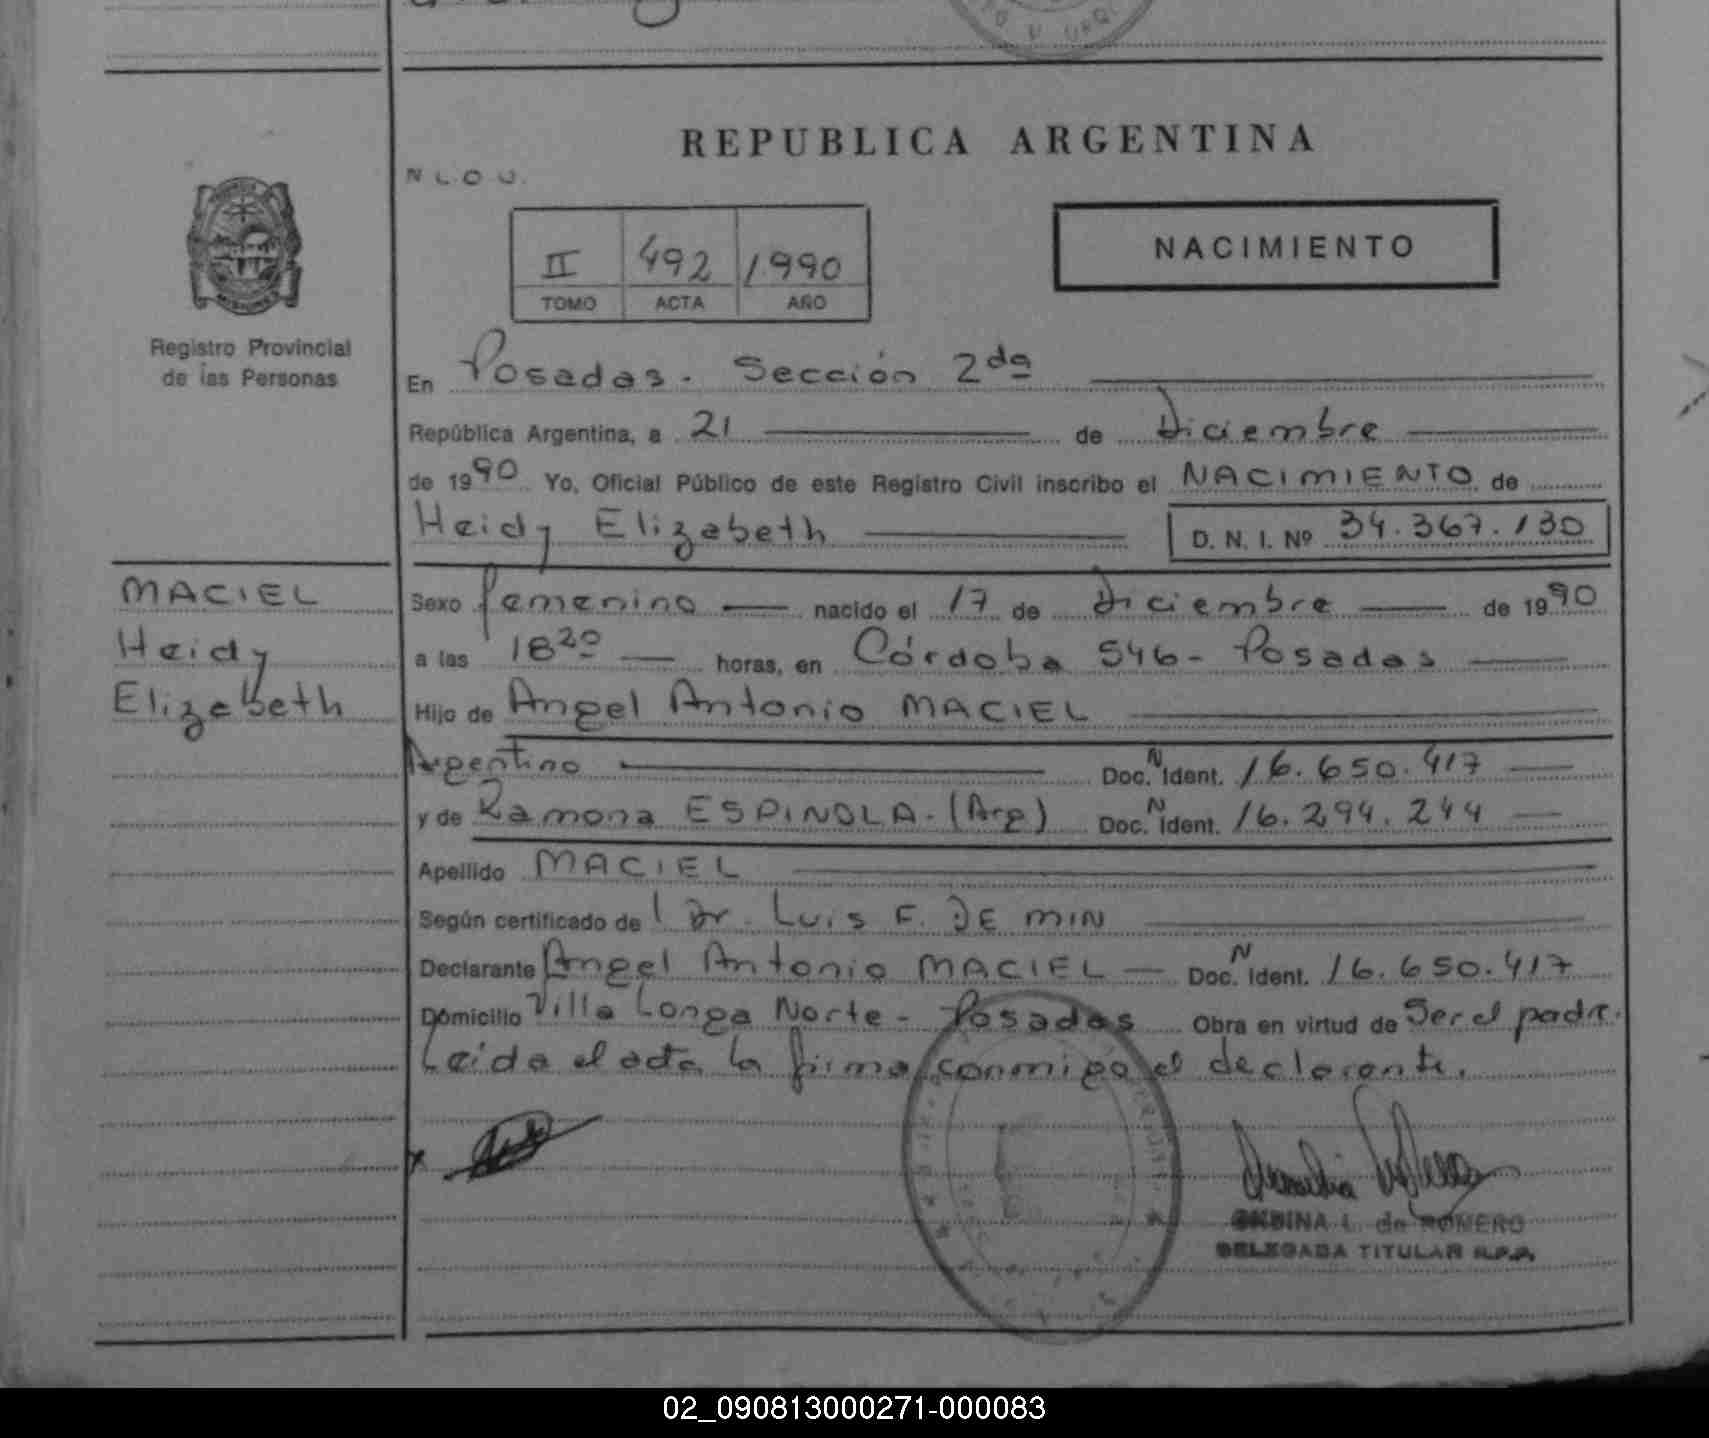 REPUBLICA ARGENTINA
N L.O U.
II 492 1990
TOMO ACTA AÑO
NACIMIENTO
Registro Provincial
de las Personas
En Posadas. Sección 2da
República Argentina, a 21 de Diciembre
de 1990 Yo, Oficial Público de este Registro Civil inscribo el NACIMIENTO de
Heidy Elizabeth D. N. I. Nº 34.367.130
MACIEL
Heidy
Elizabeth
Sexo femenino nacido el 17 de Diciembre de 1990
a las 18 20 horas, en Córdoba 546 - Posadas
Hijo de Angel Antonio MACIEL
Argentino Doc. N Ident. 16.650.417
y de Ramona ESPINOLA. (Arg) Doc. N Ident. 16.294.244
Apellido MACIEL
Según certificado de l Dr. Luis F. DE MIN
Declarante Angel Antonio MACIEL Doc. N Ident. 16.650.417
Domicilio Villa Longa Norte - Posadas Obra en virtud de Ser el padre.
Leida el acta la firma conmigo el declarante.
x
L. de ROMERO
DELEGADA TITULAR R.P.P.
02_090813000271-000083